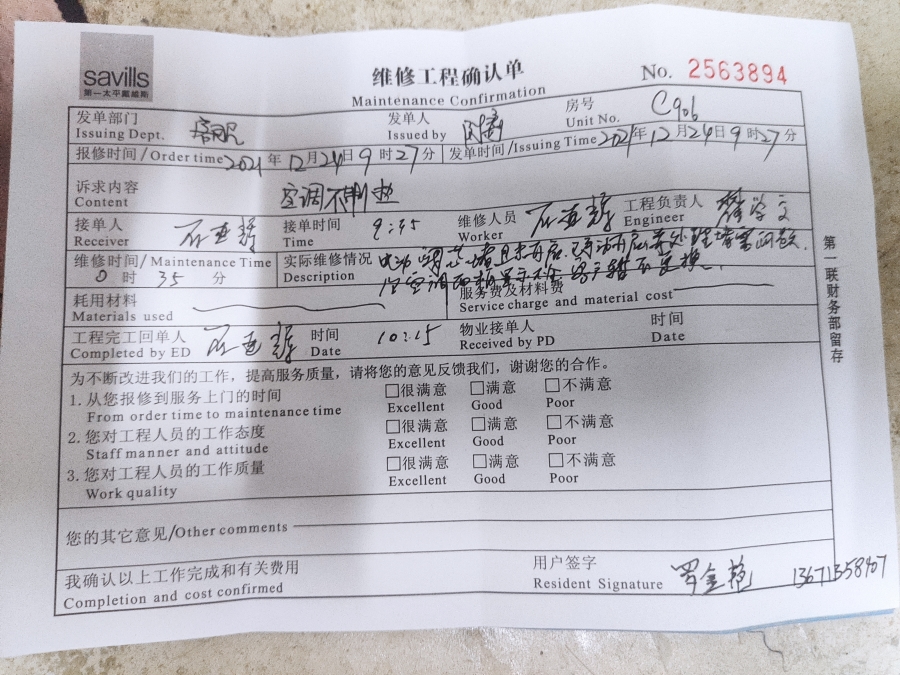 savills
第一太平戴维斯
维修工程确认单
Maintenance Confirmation
No. 2563894
发单部门
Issuing Dept. 客服
发单人
Issued by
房号
Unit No. C906
报修时间/Order time 2021年12月24日9时27分
发单时间/Issuing Time 2021年12月24日9时27分
诉求内容
Content 空调不制热
接单人
Receiver
接单时间
Time 9:45
维修人员
Worker
工程负责人
Engineer
维修时间/Maintenance Time
0时35分
实际维修情况
Description
耗用材料
Materials used
服务费及材料费
Service charge and material cost
工程完工回单人
Completed by ED
时间
Date 10:15
物业接单人
Received by PD
时间
Date
为不断改进我们的工作，提高服务质量，请将您的意见反馈我们，谢谢您的合作。
1. 从您报修到服务上门的时间 □很满意 □满意 □不满意
From order time to maintenance time Excellent Good Poor
2. 您对工程人员的工作态度 □很满意 □满意 □不满意
Staff manner and attitude Excellent Good Poor
3. 您对工程人员的工作质量 □很满意 □满意 □不满意
Work quality Excellent Good Poor
您的其它意见/Other comments
我确认以上工作完成和有关费用
Completion and cost confirmed
用户签字
Resident Signature 罗金艳 13671358407
第一联财务部留存